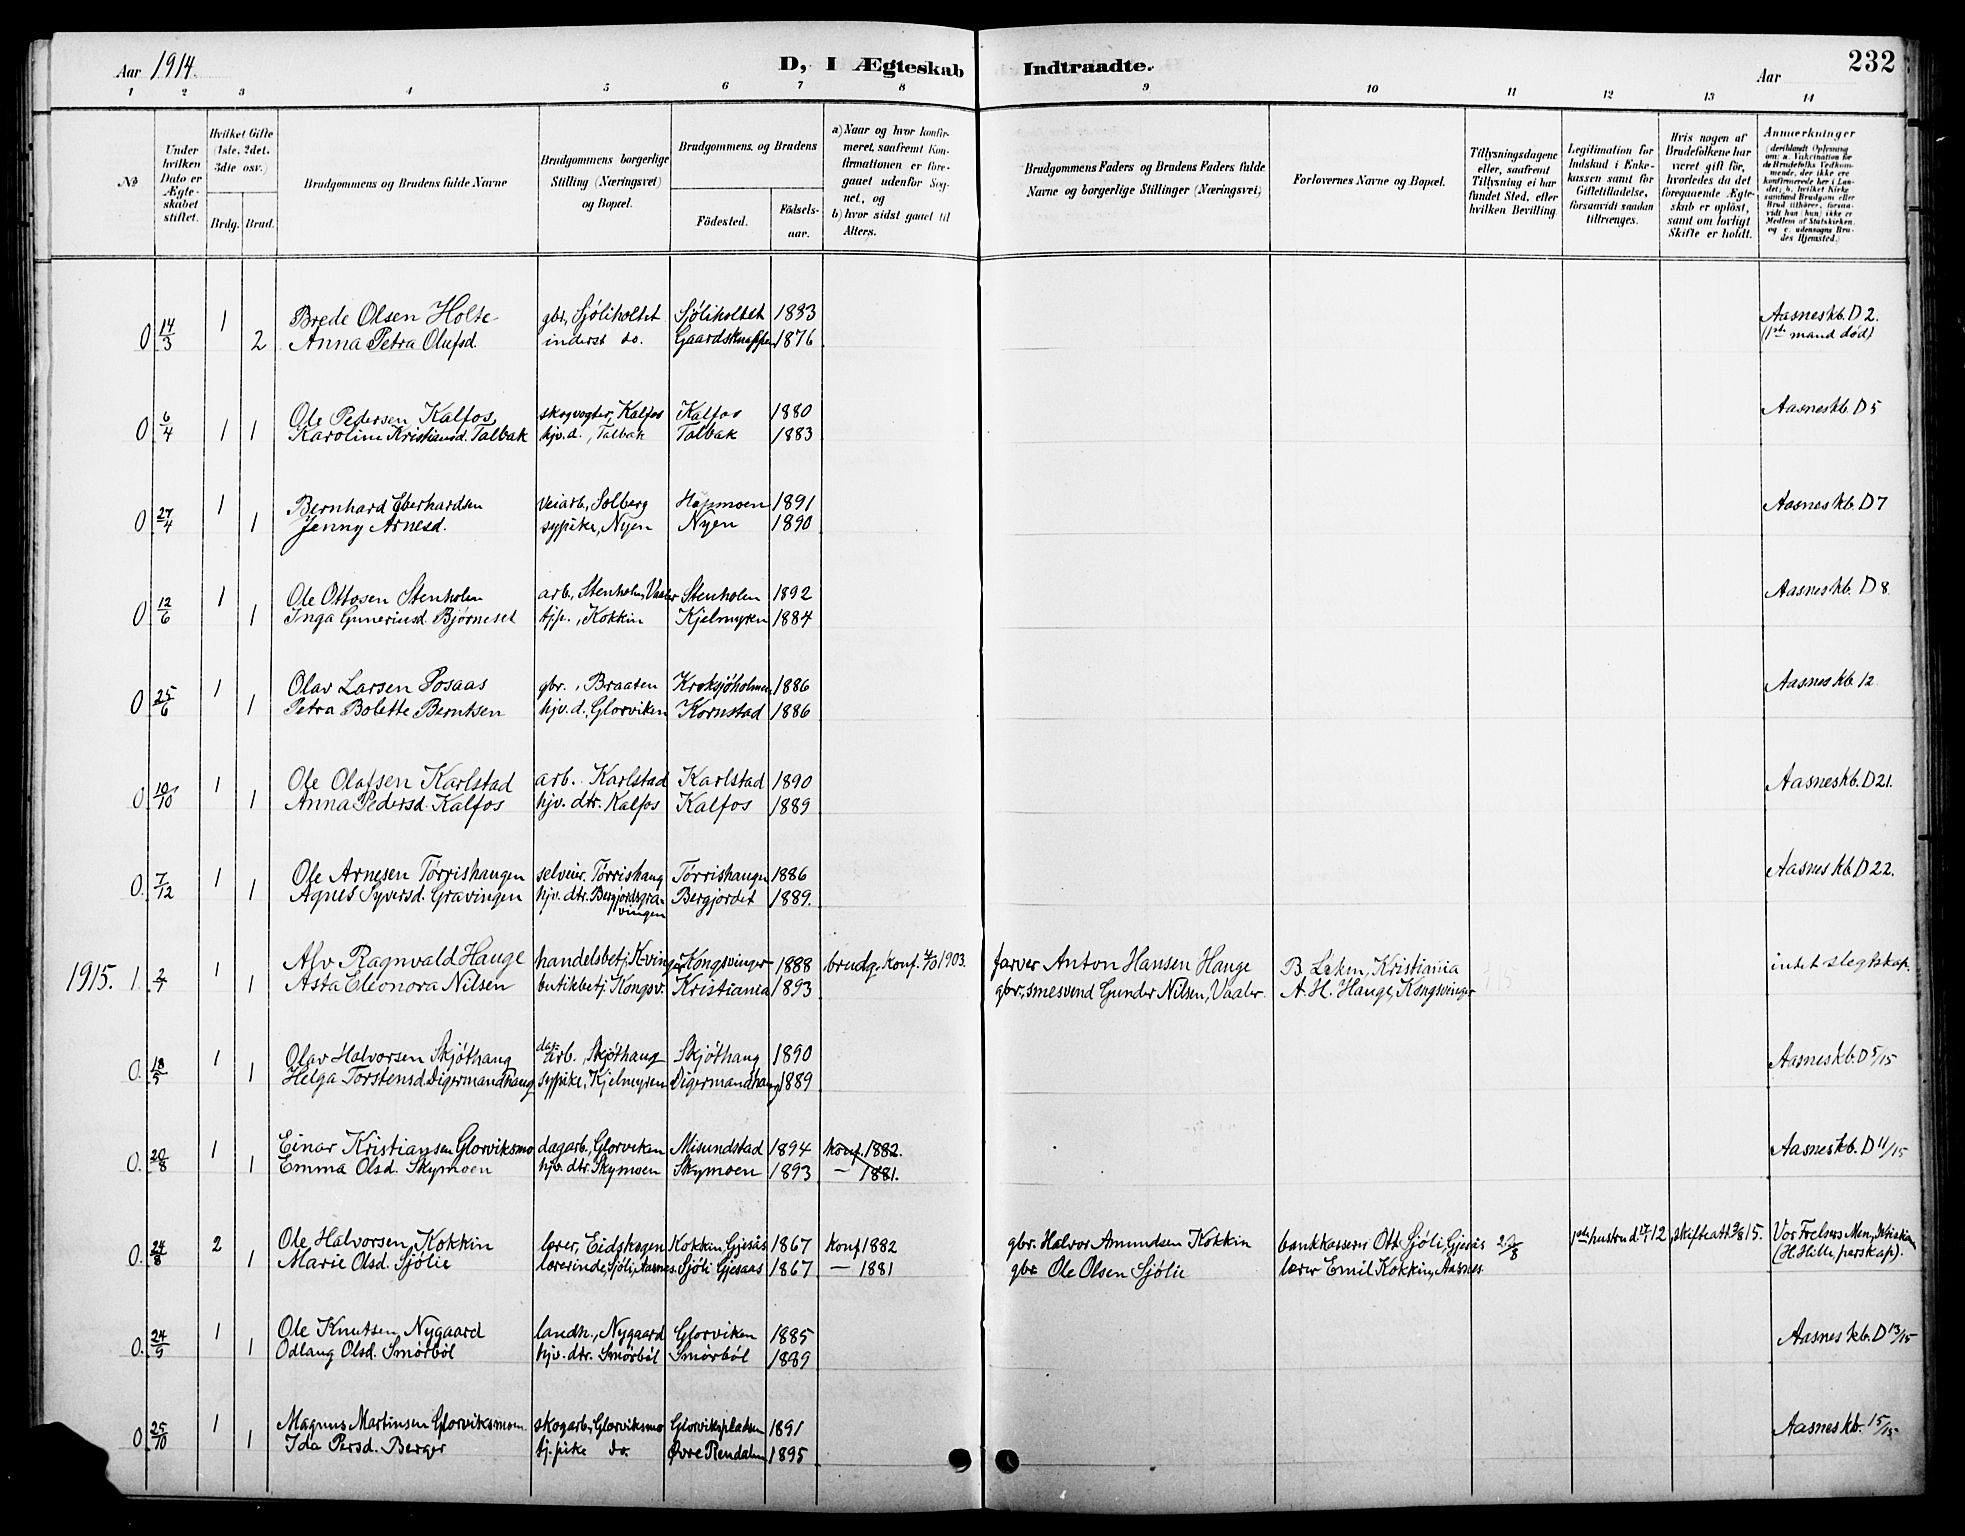 Aar 1914.
D, I Ægteskab Indtraadte.
Aar
232
1 2 3 4 5 6 7 8 9 10 11 12 13 14
No
Under hvilken Dato er Ægteskabet stiftet.
Hvilket Gifte (1ste, 2det, 3die osv.)
Brdg. Brud.
Brudgommens og Brudens fulde Navne
Brudgommens borgerlige Stilling (Næringsvei) og Bopæl.
Brudgommens og Brudens
Födested.
Födselsaar.
a) Naar og hvor konfirmeret, saafremt Konfirmationen er foregaaet udenfor Sognet, og
b) hvor sidst gaaet til Alters.
Brudgommens Faders og Brudens Faders fulde Navne og borgerlige Stillinger (Næringsvei)
Forlovernes Navne og Bopæl.
Tillysningsdagene eller, saafremt Tillysning ei har fundet Sted, efter hvilken Bevilling.
Legitimation for Indskud i Enkekassen samt for Giftetilladelse, forsaavidt saadan tiltrænges.
Hvis nogen af Brudefolkene har været gift før, hvorledes da det foregaaende Ægteskab er oplöst, samt om lovligt Skifte er holdt.
Anmærkninger (deriblandt Oplysning om: a. Vakcination for de Brudefolks Vedkommende, der ikke ere konfirmerede her i Landet; b. hvilket Kirkesamfund Brudgom eller Brud tilhörer, forsaavidt han (hun) ikke er Medlem af Statskirken, og c. udensogns Brudes Hjemsted.)
0 14/3 1 Brede Olsen Holte gbr., Sjöliholtet Sjöliholtet 1883 Aasnes kb. D 2.
2 Anna Petra Olufsd. inderst do. Gaardsknappen 1876 (1ste mand död)
0 6/4 1 Ole Pedersen Kalfos skogvogter, Kalfos Kalfos 1880 Aasnes kb. D 5
1 Karoline Kristiansd. Talbak hjv. d., Talbak Talbak 1883
0 27/4 1 Bernhard Eberhardsen veiarb., Solberg Hapmoen 1891 Aasnes kb. D 7
1 Jenny Arnesd. sypike, Nyen Nyen 1890
0 12/6 1 Ole Ottosen Stenholen arb., Stenholen, Vaaler Stenholen 1892 Aasnes kb. D 8.
1 Inga Guneriusd. Bjørneset tjp., Kokkin Kjelmyren 1884
0 25/6 1 Olav Larsen Posaas gbr., Braaten Kroksjöholmen 1886 Aasnes kb. 12.
1 Petra Bolette Berntsen hjv. d., Glorviken Kornstad 1886
0 10/10 1 Ole Olafsen Karlstad arb. Karlstad Karlstad 1890 Aasnes kb. D 21.
1 Anna Pedersd. Kalfos hjv. dtr. Kalfos Kalfos 1889
0. 7/12 1 Ole Arnesen Törrishaugen selveier, Törrishaug Törrishaugen 1886 Aasnes kb. D 22.
1 Agnes Syversd. Gravingen hjv. dtr. Bergjordsgravingen Bergjordet 1889.
1915. 1. 2/1 1 Alv Ragnvald Hauge handelsbetj. Kvinger Kongsvinger 1888 brudg. konf. 4/10 1903. farver Anton Hansen Hauge B. Laken, Kristiania intet slegtskap.
1 Asta Eleonora Nilsen butikbetj. Kongsv. Kristiania 1893 gbr., smesvend Gunder Nilsen, Vaaler. A. H. Hauge, Kongsvinger
0. 18/5 1 Olav Halvorsen Skjöthaug dagarb., Skjöthaug Skjöthaug 1890 Aasnes kb. D 5/15
1 Helga Torstensd. Digermandhaug sypike, Kjelmyren Digermandhaug 1889
0. 20/8 1 Einar Kristiansen Glorviksmo dagarb., Glorviken Misundstad 1894 konf. 1882. Aasnes kb. D 11/15
1 Emma Olsd. Skymoen hjv. dtr. Skymoen Skymoen 1893 — 1881.
0. 24/8 2 Ole Halvorsen Kokkin lærer, Eidskogen Kokkin, Gjesås 1867 Konf 1882 gbr. Halvor Amundsen Kokkin bankkasserer Ott. Sjöli, Gjesås 22/8 1ste hustru d. 17/1 12, skifteatt. 3/8 15. Vor Frelsers Men., Kristiania
1 Marie Olsd. Sjölie lærerinde, Sjöli, Aasnes. Sjöli Gjesaas 1867 — 1881 gbr Ole Olsen Sjölie lærer Emil Kokkin, Aasnes (H. Hille perskap).
0. 24/9 1 Ole Knutsen Nygaard landh., Nygaard Glorviken 1885 Aasnes kb. D 13/15
1 Odlaug Olsd. Smörböl hjv. dtr. Smörböl Smörböl 1889
0. 25/10 1 Magnus Martinsen Glorviksmoen skogarb., Glorviksmo Glorvikspladsen 1891 Aasnes kb. 15/15
1 Ida Persd. Berger tj. pike do. Øvre Rendalen 1895